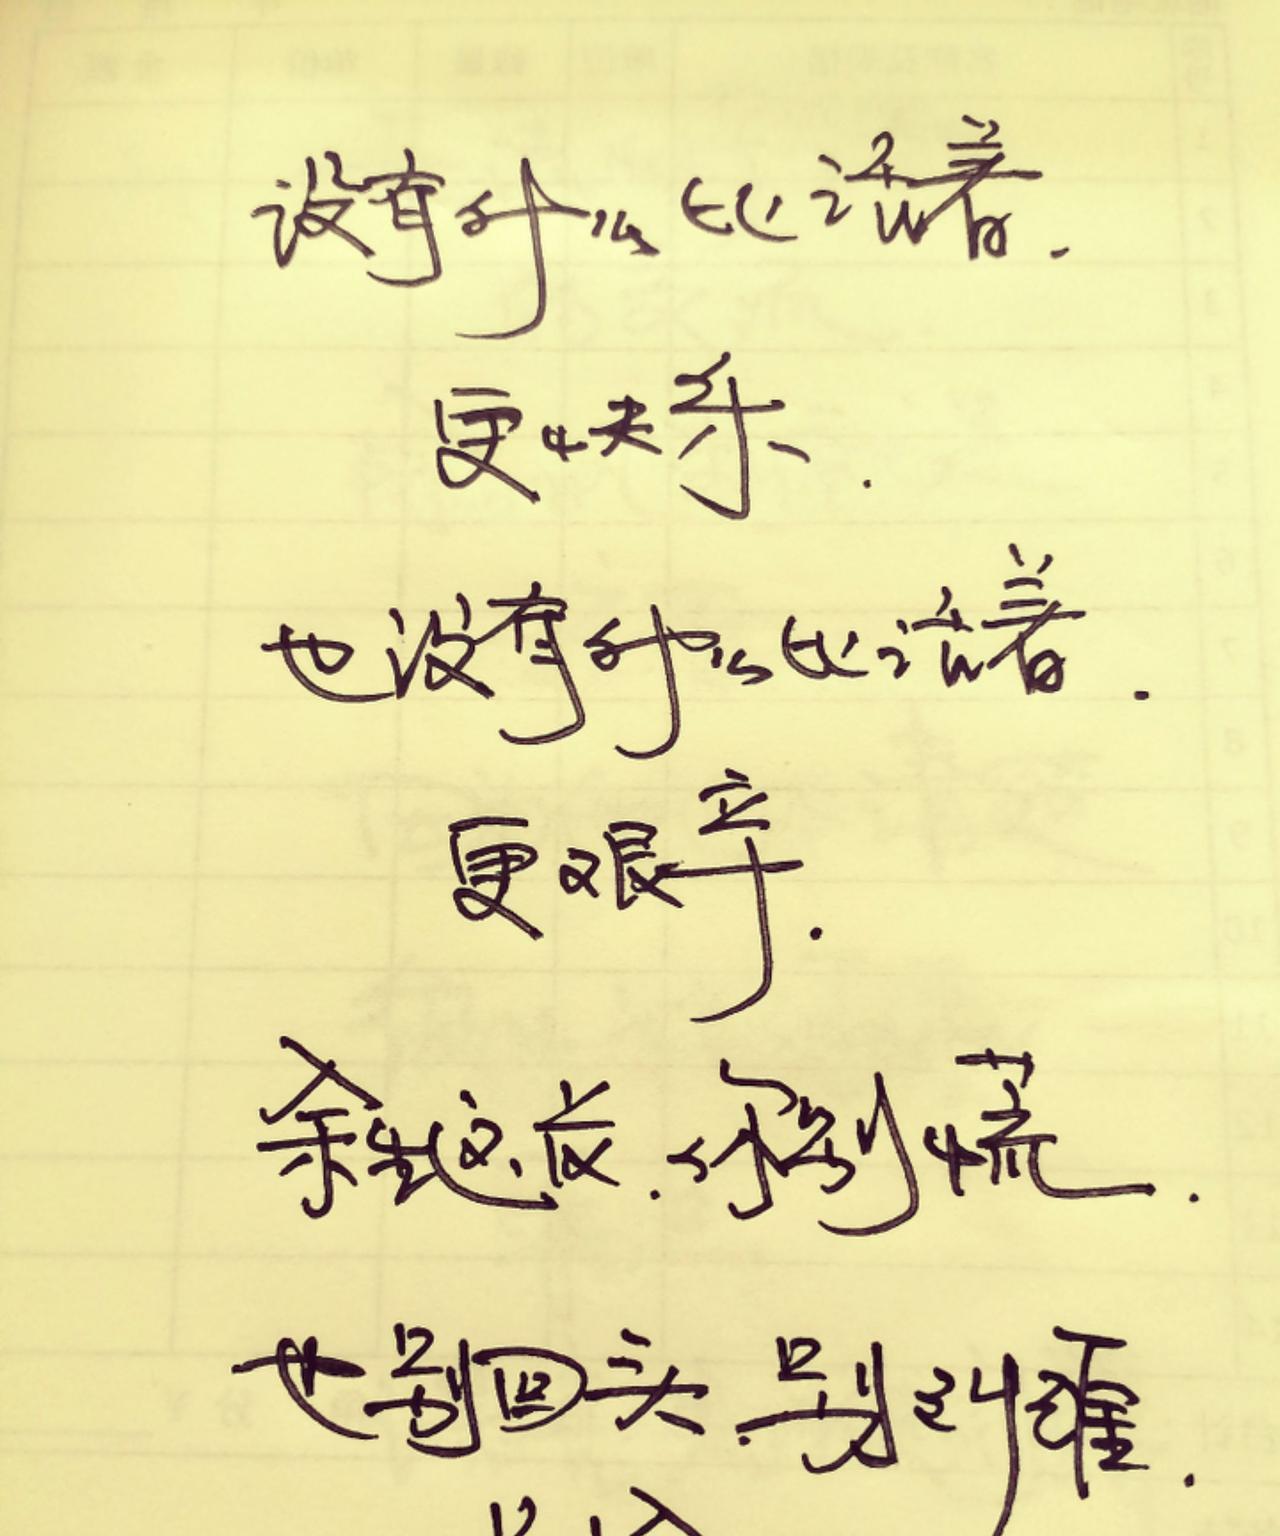 没有什么比活着.
更快乐.
也没有什么比活着.
更艰辛.
余生这夜.你别慌.
也别回头.别纠难.